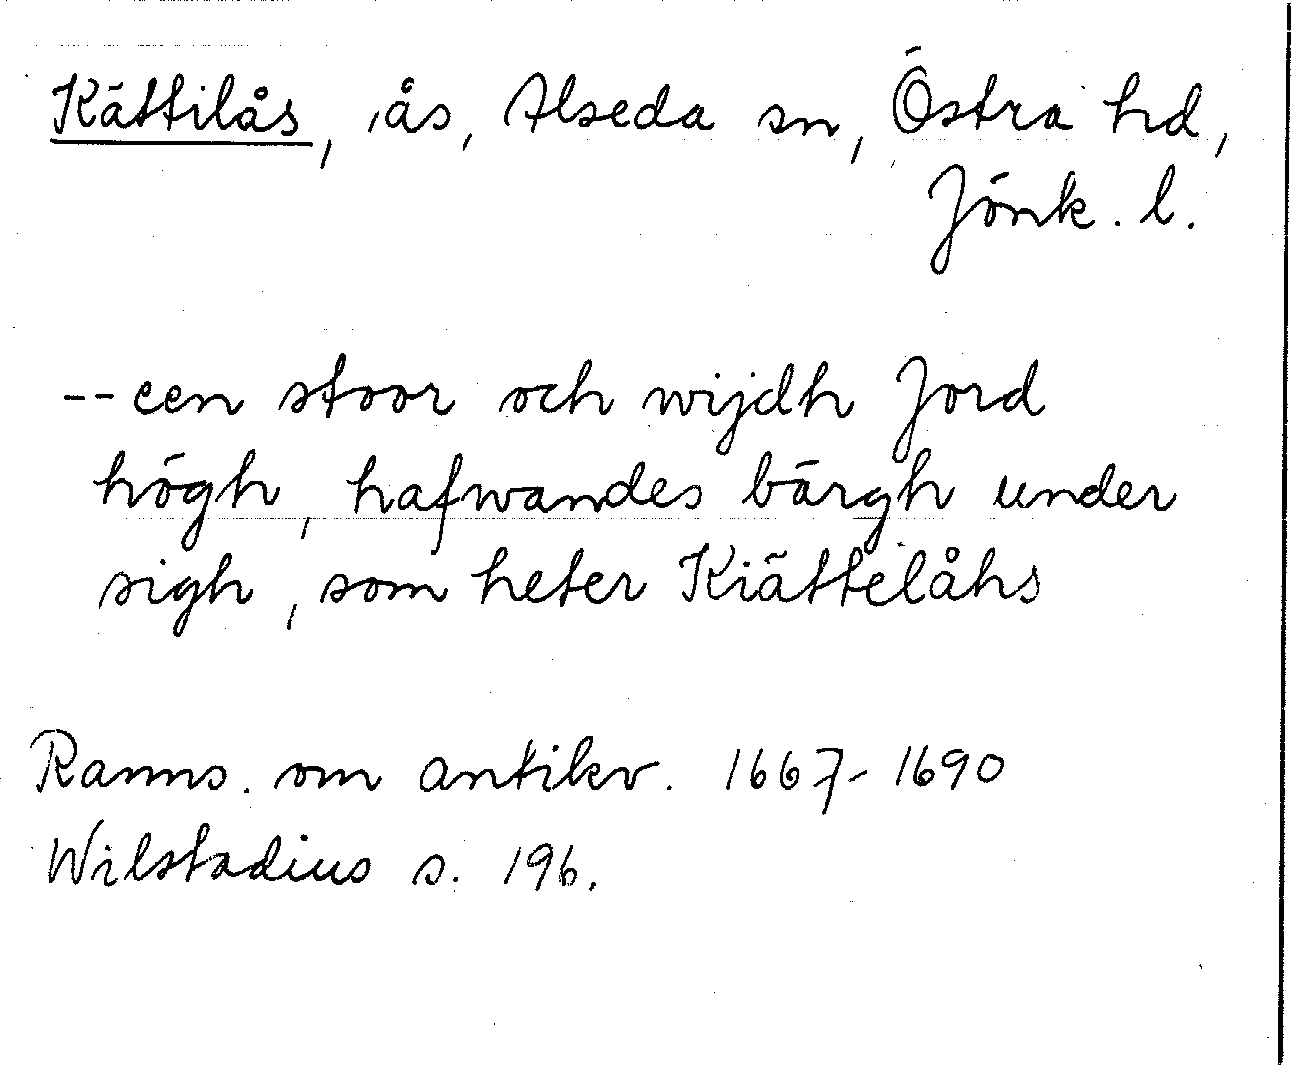 Kättilås, ås, Alseda sn, Östra hd,
Jönk. l.
-- een stoor och wijdh Jord
högh, hafwandes bärgh under
sigh, som heter Kiättelåhs
Ranns. om antikv. 1667-1690
Wilstadius s. 196.